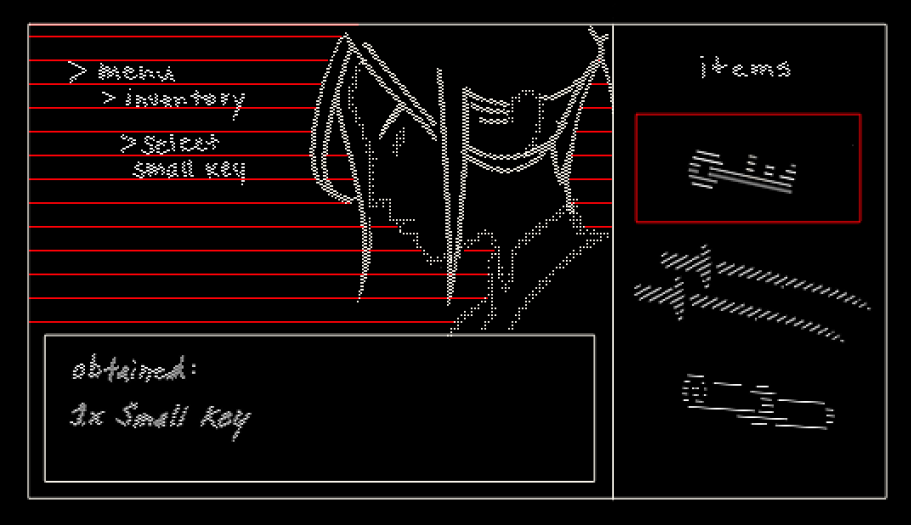 > menu
> inventory
> Select
small key
items
obtained:
1x Small Key